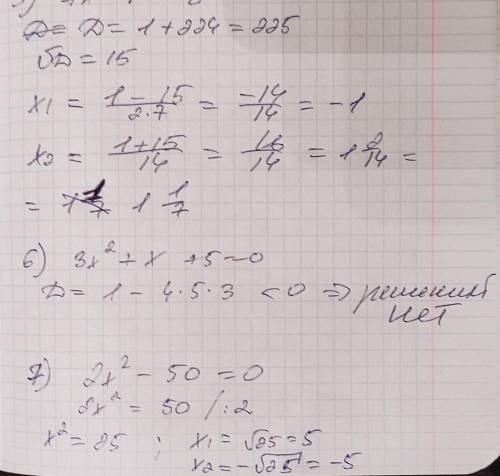 D = D = 1 + 224 = 225
√D = 15
x1 = (1 - 15)/(2·7) = -14/14 = -1
x2 = (1+15)/14 = 16/14 = 1 2/14 =
= 1 1/7 1 1/7
6) 3x² + x + 5 = 0
D = 1 - 4·5·3 < 0 => решений
нет
7) 2x² - 50 = 0
2x² = 50 /:2
x² = 25 ; x1 = √25 = 5
x2 = -√25 = -5